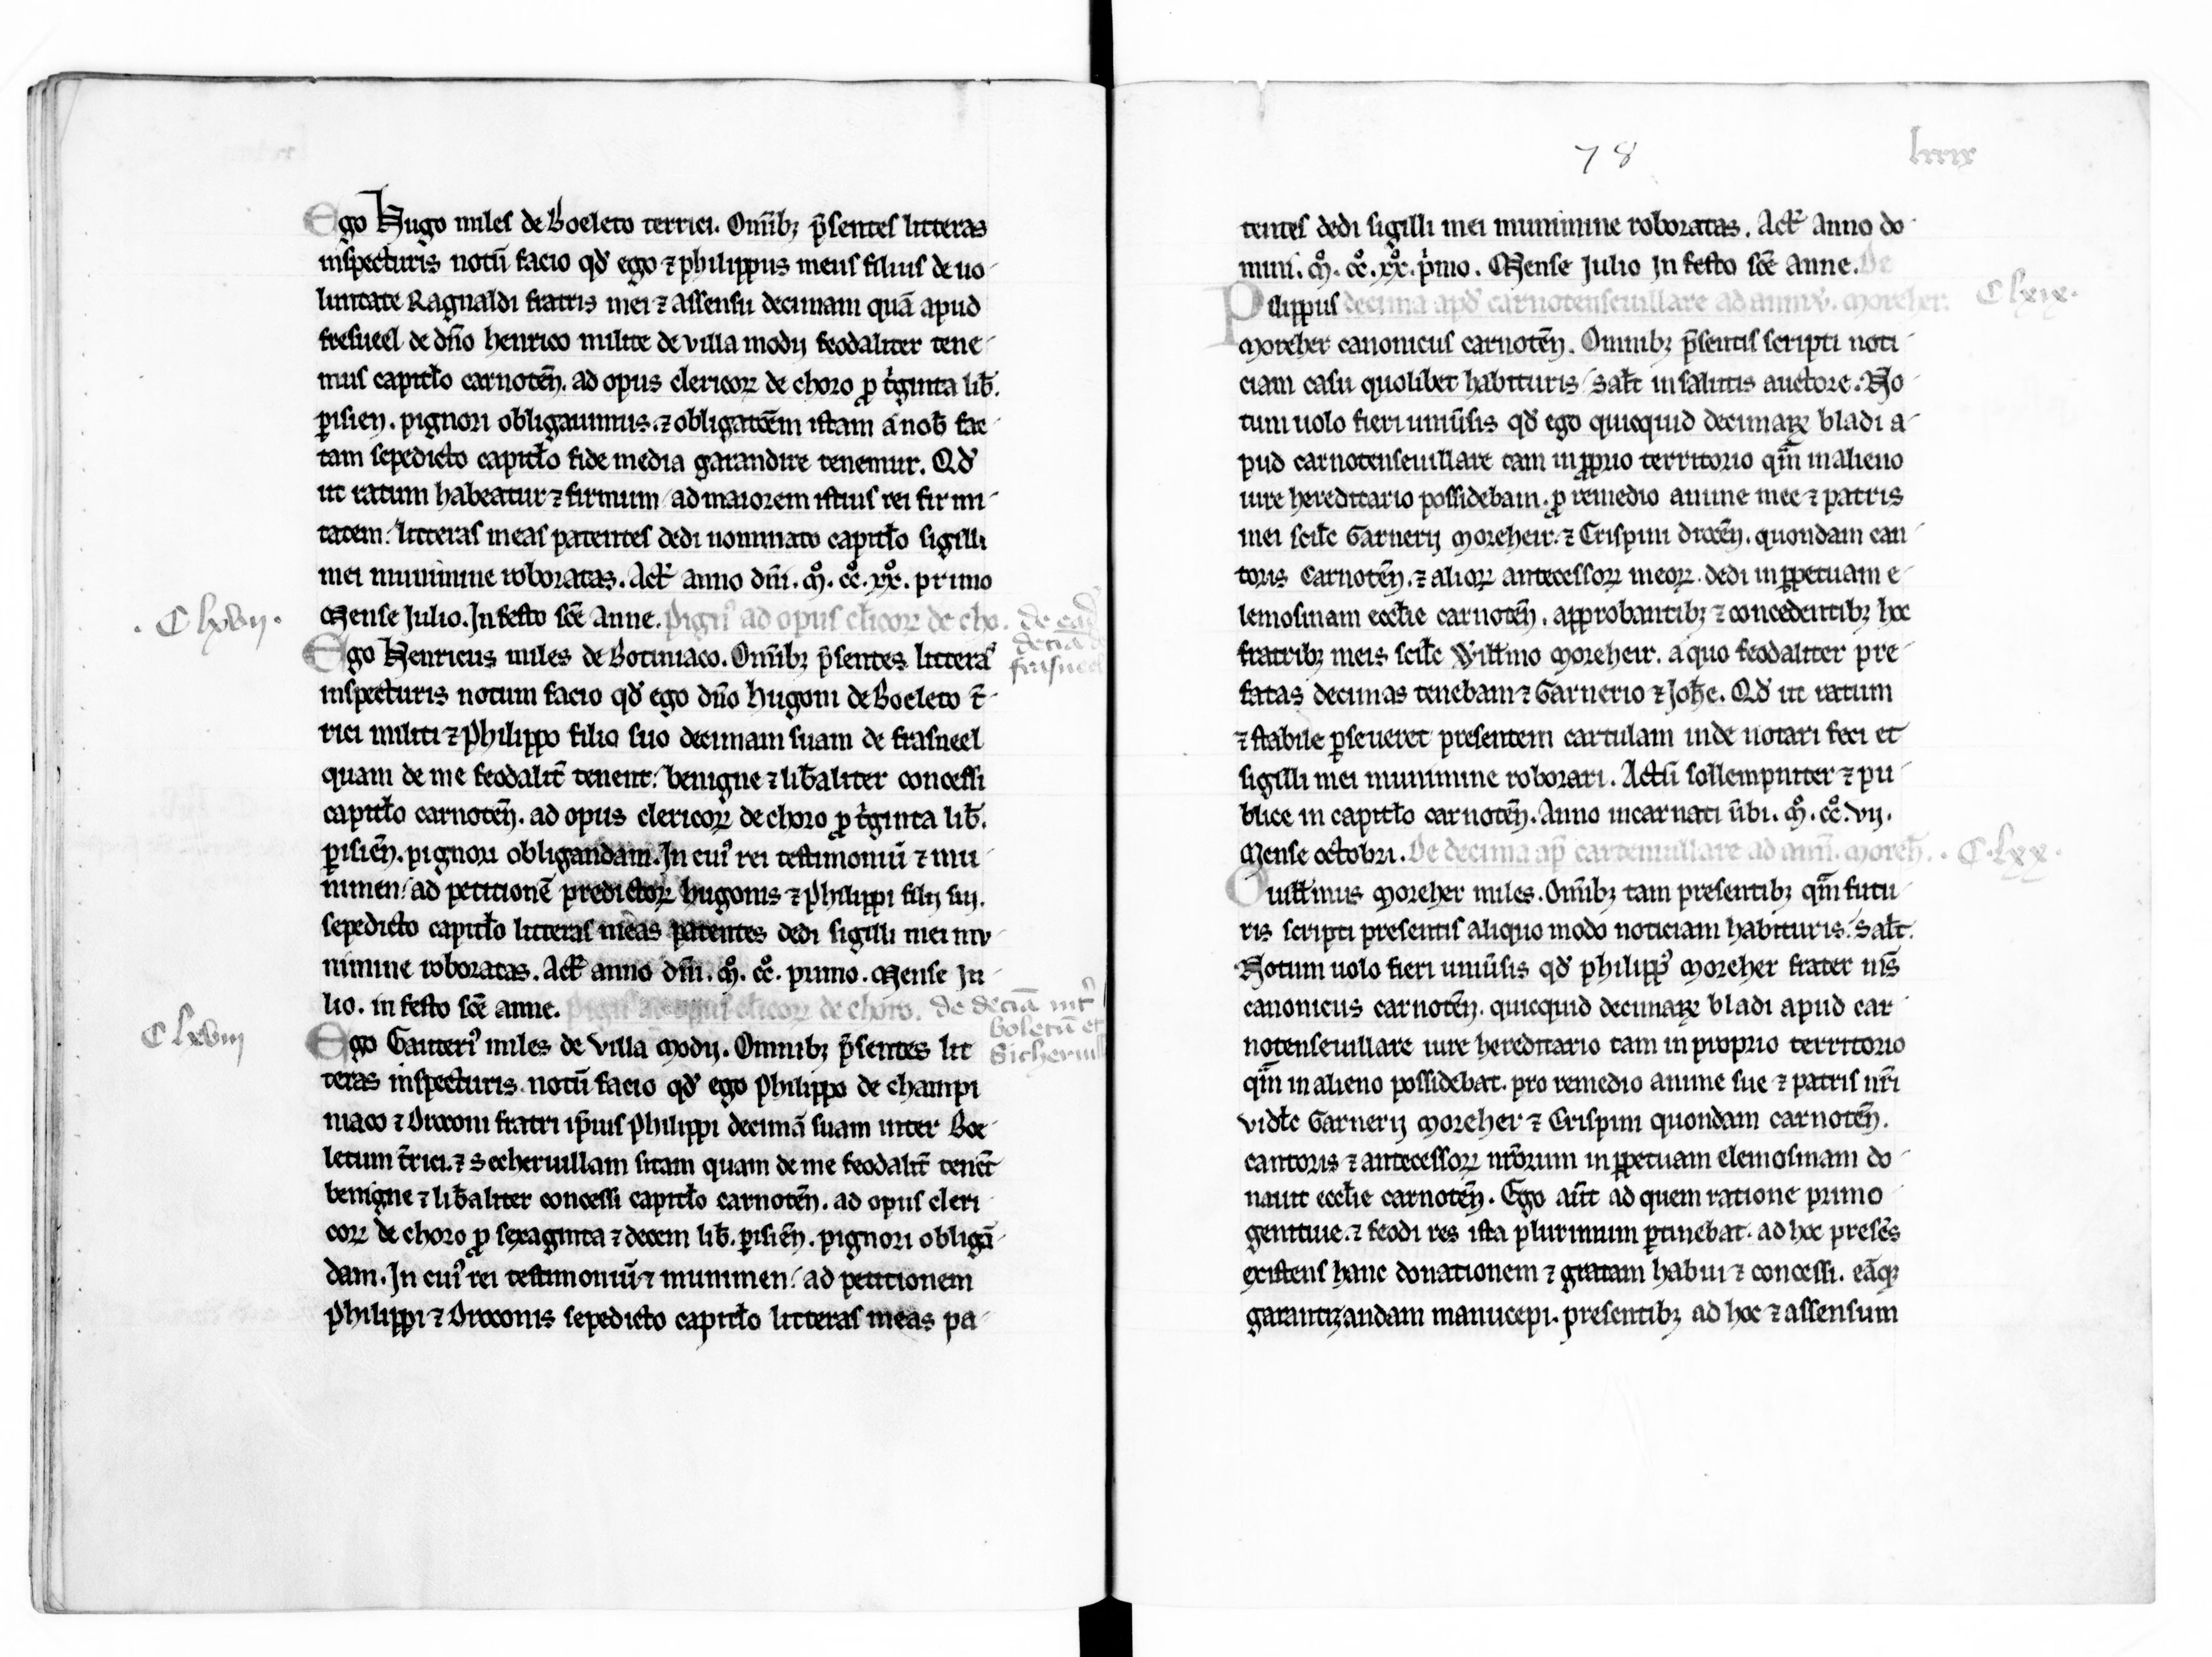 Ego Hugo miles de Boeleto terrici. Omīb; p̄sentes litteras
inspecturis notū facio qd̕ ego ⁊ philippus meus filius de uo-
luntate Ragnaldi fratris mei ⁊ assensu decimam quā apud
fresueel de dn̄o henrico milite de villa modij feodaliter tene-
mus capitl̵o carnoten̄. ad opus clericoꝝ de choro ꝓ tͥginta lib̄.
ꝑisien̄. pignori obligauimus. ⁊ obligatōēm istam a nob̄ fac-
tam sepedicto capitl̵o fide media garandire tenemur. Qd̕
ut ratum habeatur ⁊ firmum / ad maiorem istius rei firmi-
tatem: litteras meas patentes dedi nominato capitl̵o sigilli
mei munimine roboratas. Act̄ anno dn̄i. m̊. cc̊. xx̊. primo
Mense Julio. In festo sc̄e Anne. Pigꝰ ad opus cl̵icoꝝ de cho. de ead̕
decīa d
frasneel
. C lxvij .
Ego Henricus miles de Botiniaco. Omīb; p̄sentes litteras
inspecturis notum facio qd̕ ego dn̄o hugoni de Boeleto t̄-
rici militi ⁊ Philippo filio suo decimam suam de frasneel
quam de me feodalit̄ tenent: benigne ⁊ lib̄aliter concessi
capitl̵o carnoten̄. ad opus clericoꝝ de choro ꝓ tͥginta lib̄.
ꝑisien̄. pignori obligandam. In cuiꝰ rei testimoniū ⁊ mu-
nimen / ad petitionē predictoꝝ hugonis ⁊ Philippi filij sui.
sepedicto capitl̵o litteras meas patentes dedi sigilli mei mu-
nimine roboratas. Act̄ anno dn̄i. m̊. cc̊. primo. Mense Ju-
lio. in festo sc̄e anne. Pigꝰ ad opus cl̵icoꝝ de choro. de decīa int̕
boletū et
Sicheruill
C lxviij
Ego Gauteriꝰ miles de villa modij. Omnib; p̄sentes lit
teras inspecturis. notū facio qd̕ ego Philippo de champi
niaco ⁊ Droconi fratri ip̄ius Philippi decimā suam inter Boe-
letum t̄rici. ⁊ Secheruillam sitam quam de me feodalit̄ tenēt
benigne ⁊ lib̄aliter concessi capitl̵o carnoten̄. ad opus cleri
coꝝ de choro ꝓ sexaginta ⁊ decem lib̄. ꝑisien̄. pignori obligā-
dam. In cuiꝰ rei testimoniū ⁊ munimen / ad petitionem
Philippi ⁊ Droconis sepedicto capitl̵o litteras meas pa-
78
lxxix
tentes dedi sigilli mei munimine roboratas. Act̄ Anno do-
mini. m̊. cc̊. xx̊. pͥmo. Mense Julio In festo sc̄e Anne. De
Philippus decima apd̕ carnotenseuillare ad anniv̕. moreher. C lxix.
moreher canonicus carnoten̄. Omnib; p̄sentis scripti noti-
ciam casu quolibet habituris / Salt̄ in salutis auctore. No-
tum uolo fieri uniūsis qd̕ ego quicquid decimaꝝ bladi a-
pud carnotenseuillare tam in ꝓprio territorio qm̄ in alieno
iure hereditario possidebam. ꝓ remedio anime mee ⁊ patris
mei scil̵c Garnerij moreheir. ⁊ Crispini drocen̄. quondam can-
toris Carnoten̄. ⁊ alioꝝ antecessoꝝ meoꝝ. dedi in ꝑpetuam e-
lemosinam eccl̵ie carnoten̄. approbantib; ⁊ concedentib; hoc
fratrib; meis scil̵c Will̵mo moreheir. a quo feodaliter pre-
fatas decimas tenebam ⁊ Garnerio ⁊ Joh̵e. Qd̕ ut ratum
⁊ stabile ꝑseueret presentem cartulam inde notari feci et
sigilli mei munimine roborari. Actū sollempniter ⁊ pu-
blice in capitl̵o carnoten̄. Anno incarnati ūbi. m̊. cc̊. vij.
Mense octobri. De decima ap̄ cartenuillare ad anīū. moreh̄. . C. lxx.
Guill̵mus moreher miles. Omīb; tam presentib; qm̄ futu-
ris scripti presentis aliquo modo noticiam habituris. Salt̄.
Notum uolo fieri uniūsis qd̕ philippꝰ moreher frater m̄s
canonicus carnoten̄. quicquid decimaꝝ bladi apud car-
notenseuillare iure hereditario tam in proprio territorio
qm̄ in alieno possidebat. pro remedio anime sue ⁊ patris nr̄i
vidl̵c Garnerij moreher ⁊ Crispini quondam carnoten̄.
cantoris ⁊ antecessoꝝ nr̄orum in ꝑpetuam elemosinam do-
nauit eccl̵ie carnoten̄. Ego aūt ad quem ratione primo
genitiue. ⁊ feodi res ista plurimum ꝑtinebat. ad hoc presēs
existens hanc donationem ⁊ gratam habui ⁊ concessi. eāq;
garantizandam manucepi. presentib; ad hoc ⁊ assensum